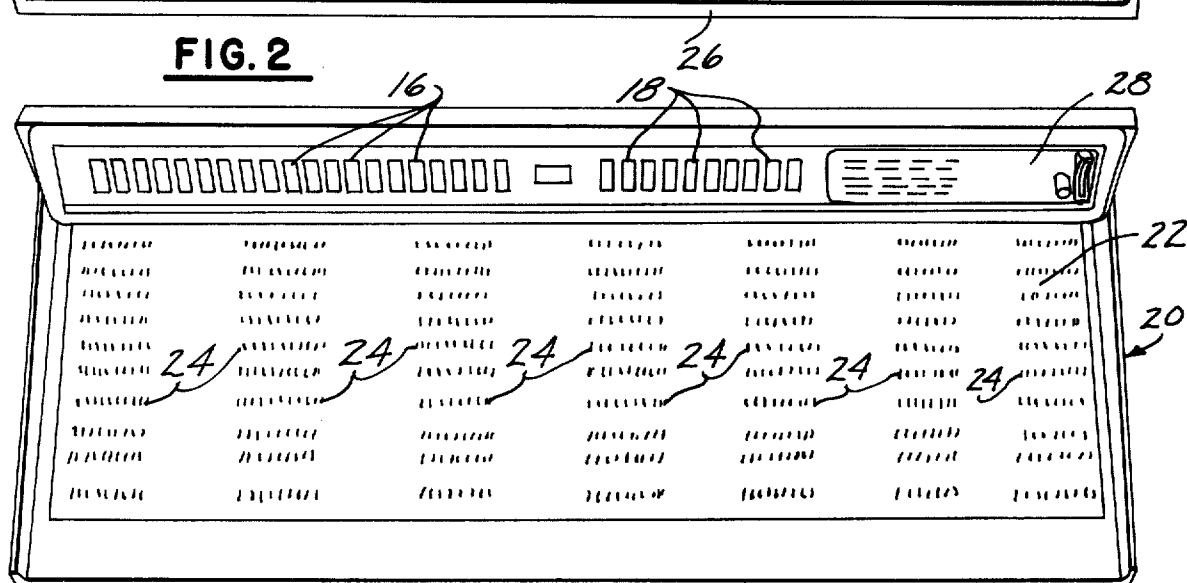 26
FIG. 2
16 18 28
22
20
24 24 24 24 24 24